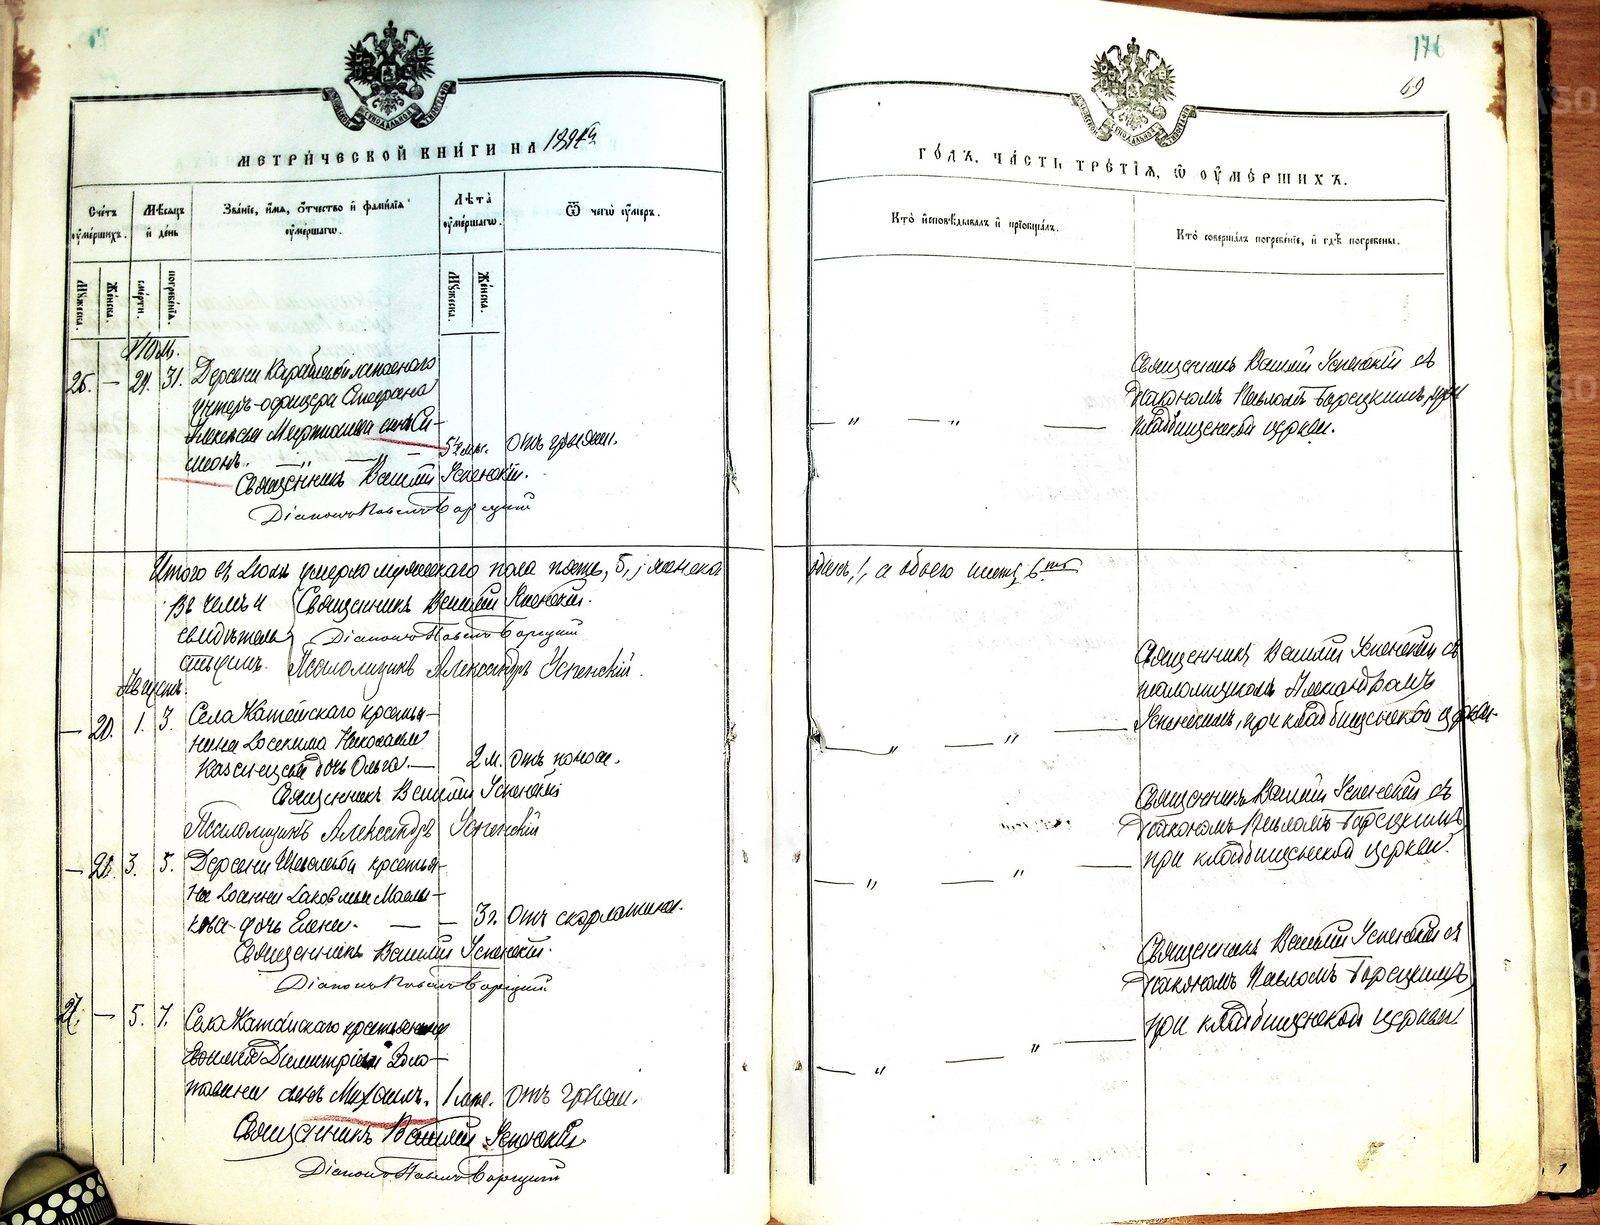 176
69
МЕТРИЧЕСКОЙ КНИГИ НА 1894й
ГОДЪ, ЧАСТЬ ТРЕТІЯ, Ѿ ОУМЕРШИХЪ.
Счетъ оумершихъ.
Мѣсяцъ и день
Званіе, имя, отчество и фамилія оумершагω.
Лѣта оумершагω.
Ѿ чегω оумеръ.
Кто исповѣдывалъ и пріобщалъ.
Кто совершалъ погребеніе, и гдѣ погребены.
Мужеска.
Женска.
смерти.
погребенія.
Мужеска.
Женска.
Іюль.
25. — 29. 31. Деревни запасного
унтеръ-офицера Стефана
Алексѣева Мартюшева сынъ Си-
меонъ. 5½ мѣс. отъ грыжи.
Священникъ Василій Успенскій.
Діаконъ Павелъ Борецкій
Священникъ Василій Успенскій съ
діакономъ Павломъ Борецкимъ, при
кладбищенской церкви.
Итого въ Іюлѣ умерло мужескаго пола пять, 5, женска
одинъ, 1, а обоего шесть, 6ть
Въ чемъ и
свидѣтель
ствуемъ.
Священникъ Василій Успенскій.
Діаконъ Павелъ Борецкій
Псаломщикъ Александръ Успенскій.
Августъ.
— 20. 1. 3. Села Катайскаго кресть-
янина Іоакима Николаева
дочь Ольга. — 2 м. отъ поноса.
Священникъ Василій Успенскій
Псаломщикъ Александръ Успенскій
Священникъ Василій Успенскій съ
псаломщикомъ Александромъ
Успенскимъ, при кладбищенской церкви.
— 3. 5. Деревни крестья-
на Іоанна Іаковлева
дочь Елена. — 3 г. отъ скарлатины.
Священникъ Василій Успенскій.
Діаконъ Павелъ Борецкій
Священникъ Василій Успенскій съ
діакономъ Павломъ Борецкимъ,
при кладбищенской церкви.
27. — 5. 7. Села Катайскаго крестьянина
Димитріева Золо-
тавина сынъ Михаилъ. 1 мѣс. отъ грыжи.
Священникъ Василій Успенскій
Діаконъ Павелъ Борецкій
Священникъ Василій Успенскій съ
діакономъ Павломъ Борецкимъ,
при кладбищенской церкви.